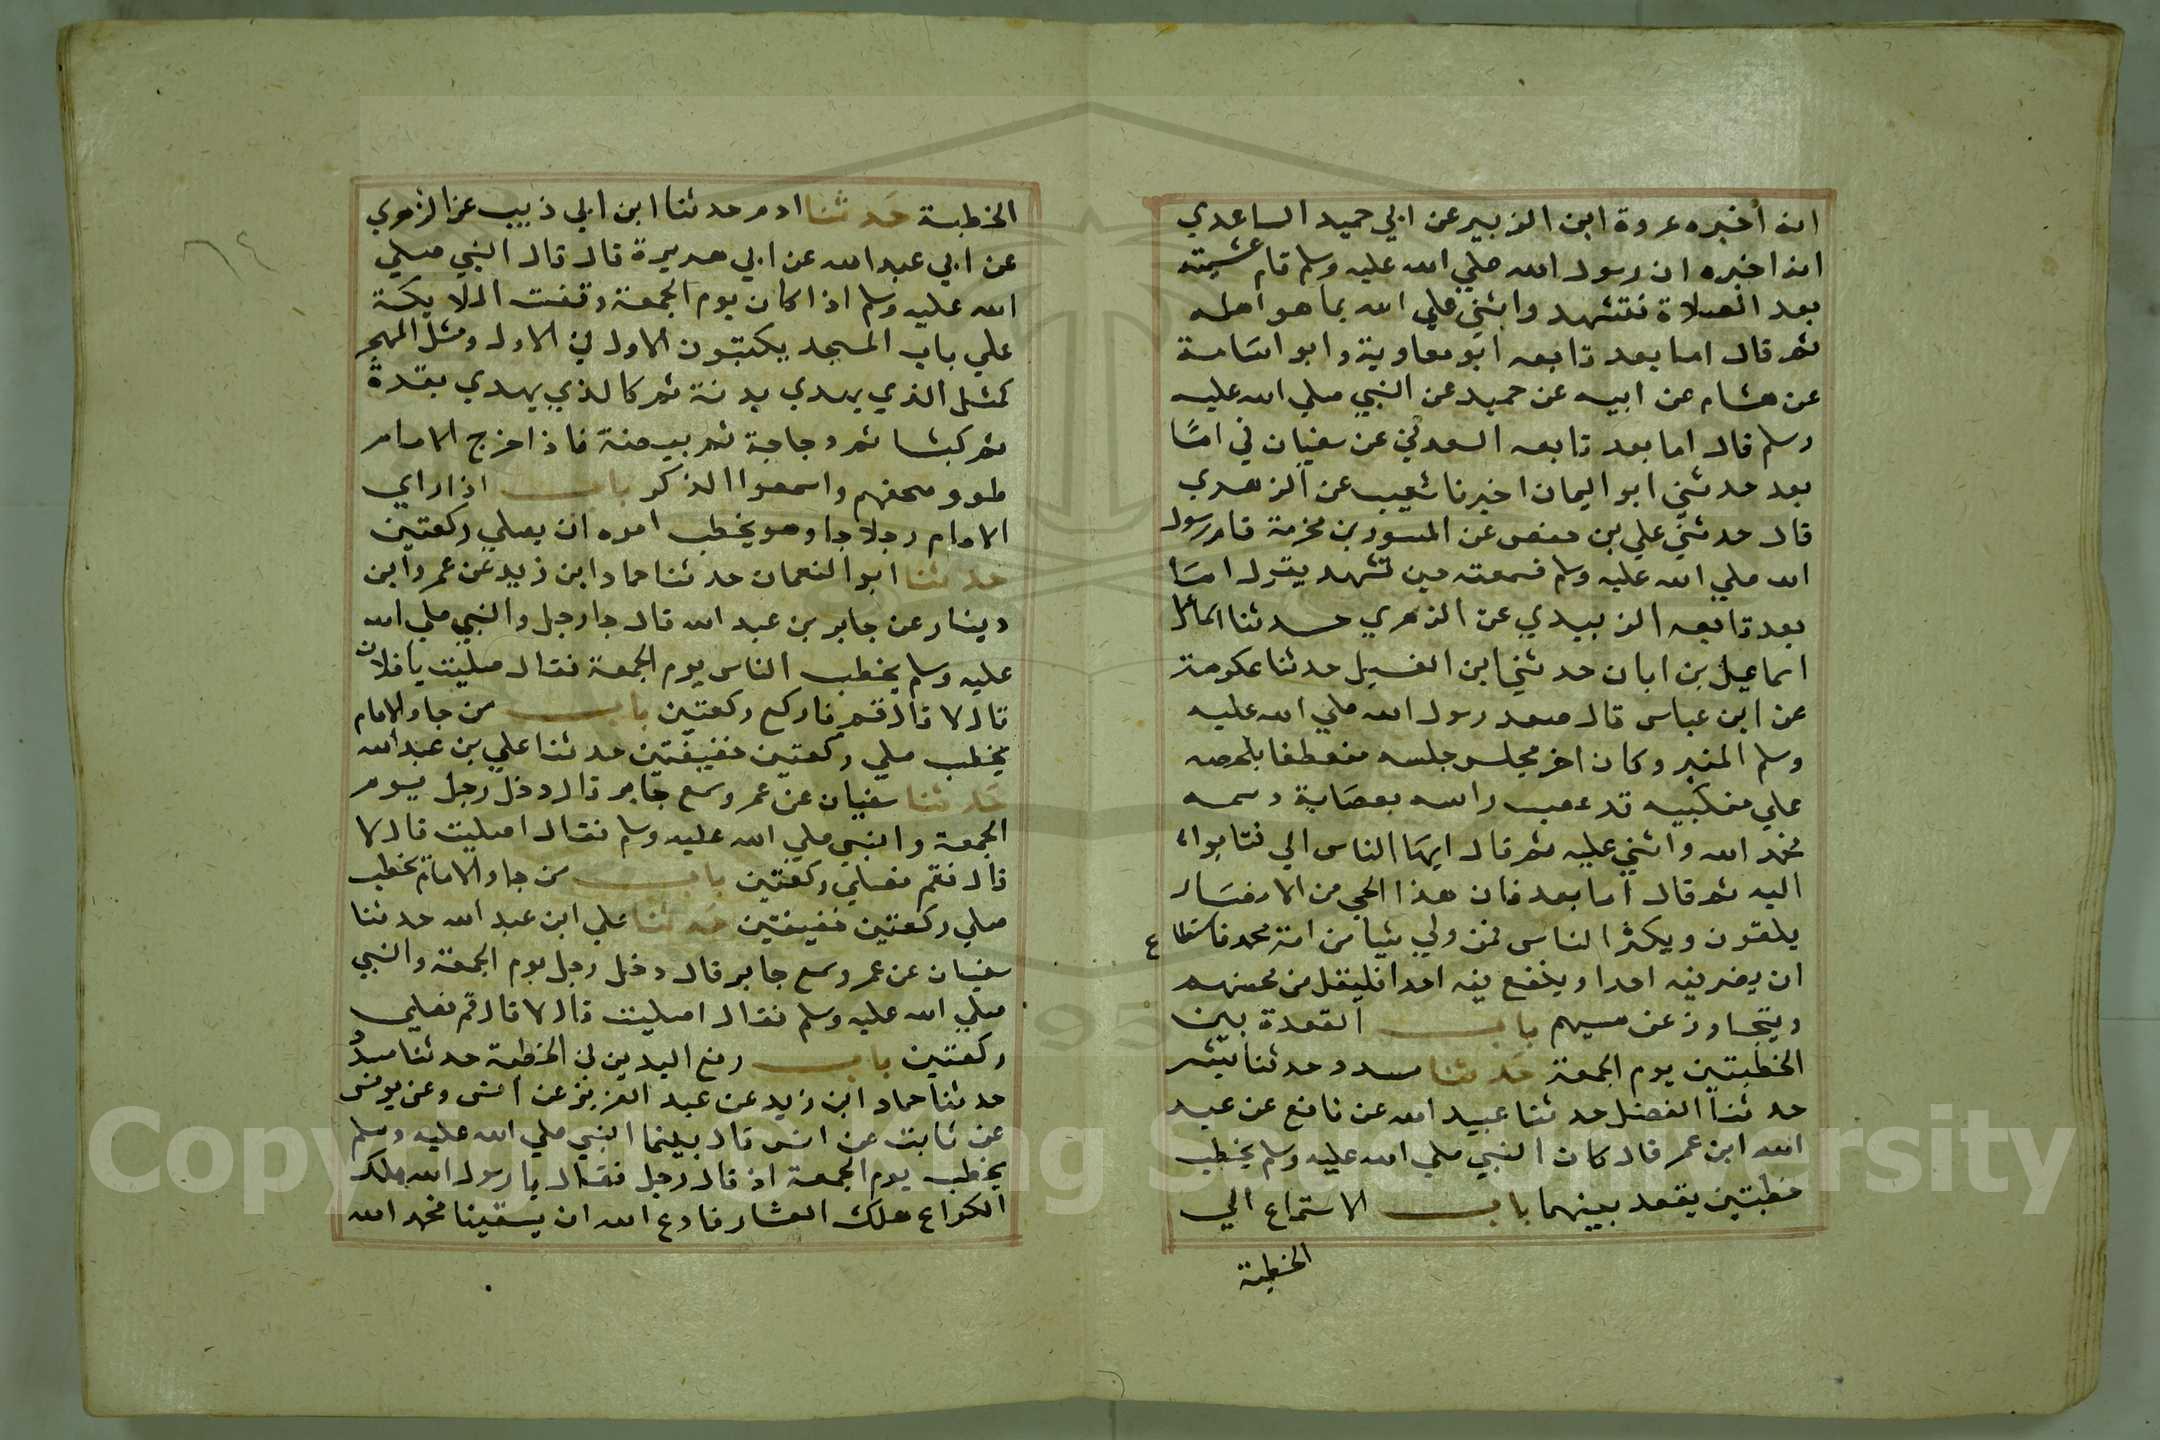 انه أخبره عروة ابن الزبير عن ابي حميد الساعدي
انه اخبره ان رسول الله صلي الله عليه وسلم قام عشيته
بعد الصلاة فتشهد واثني علي الله بما هو اهله
ثم قال اما بعد تابعه ابو معاوية وابو اسامة
عن هشام عن ابيه عن حميد عن النبي صلي الله عليه
وسلم قال اما بعد تابعه العدني عن سفيان في امّا
بعد حدثني ابو اليمان اخبرنا شعيب عن الزهري
قال حدثني علي بن حفص عن المسور بن مخرمة قام رسول
الله صلي الله عليه وسلم فسمعته حين تشهد يقول امّا
بعد تابعه الزبيدي عن الزهري حدثنا
اسماعيل بن ابان حدثني ابن الغسيل حدثنا عكرمة
عن ابن عباس قال صعد رسول الله صلي الله عليه
وسلم المنبر وكان اخر مجلس جلسه منعطفا بلحصه
علي منكبيه قد عصب راسه بعصابة دسمه
فحمد الله واثني عليه ثم قال ايها الناس الي فتابوا
اليه ثم قال أما بعد فان هذا الحي من الانصار
يلقون ويكثر الناس فمن ولي شيا من امة محمد فاستطا
ع
ان يضر فيه احدا وينفع فيه احدا فليقبل من محسنهم
ويتجاوز عن مسيهم باب القعدة بين
الخطبتين يوم الجمعة حدثنا مسدد وحدثنا بشر
حدثنا الفضل حدثنا عبيد الله عن نافع عن عبد
الله ابن عمر قال كان النبي صلي الله عليه وسلم يخطب
خطبتين يقعد بينهما باب الاستماع الي
الخطبة
الخطبة حدثنا ادم حدثنا ابن ابي ذييب عن الزهري
عن ابي عبد الله عن ابي هريرة قال قال النبي صلي
الله عليه وسلم اذا كان يوم الجمعة وقفت الملايكة
علي باب المسجد يكتبون الاول في الاول ومثل المهجر
كمثل الذي يهدي بدنة ثم كالذي يهدي بقرة
ثم كبشا ثم دجاجة ثم بيضة فاذا خرج الامام
طوو صحفهم واسمعوا الذكر باب اذا راي
الامام رجلا جا وهو يخطب امره ان يصلي ركعتين
حدثنا ابو النعمان حدثنا حماد ابن زيد عن عمرو ابن
دينار عن جابر بن عبد الله قال جا رجل والنبي صلي الله
عليه وسلم يخطب الناس يوم الجمعة فقال صليت يا فلان
قال لا قال قم فاركع ركعتين باب من جا والامام
يخطب صلي ركعتين خفيفتين حدثنا علي بن عبد الله
حدثنا سفيان عن عمر وسمع جابر قال دخل رجل يوم
الجمعة والنبي صلي الله عليه وسلم فقال اصليت قال لا
قال فقم فصلي ركعتين باب من جا والامام يخطب
صلي ركعتين خفيفتين حدثنا علي ابن عبد الله حدثنا
سفيان عن عمر وسمع جابر قال دخل رجل يوم الجمعة والنبي
صلي الله عليه وسلم فقال اصليت قال لا قال قم فصلي
ركعتين باب رفع اليدين في الخطبة حدثنا مسدد
حدثنا حماد ابن زيد عن عبد العزيز عن انس وعن يونس
عن ثابت عن انس قال بينما النبي صلي الله عليه وسلم
يخطب يوم الجمعة اذ قال رجل فقال يا رسول الله هلك
الكراع هلك الشا فادع الله ان يسقينا فحمد الله